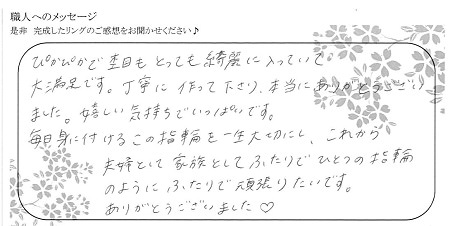 職人へのメッセージ
是非 完成したリングのご感想をお聞かせください♪
ぴかぴかで杢目もとっても綺麗に入っていて
大満足です。丁寧に作って下さり、本当にありがとうござい
ました。嬉しい気持ちでいっぱいです。
毎日身に付けるこの指輪を一生大切にし、これから
夫婦として家族としてふたりでひとつの指輪
のようにふたりで頑張りたいです。
ありがとうございました♡